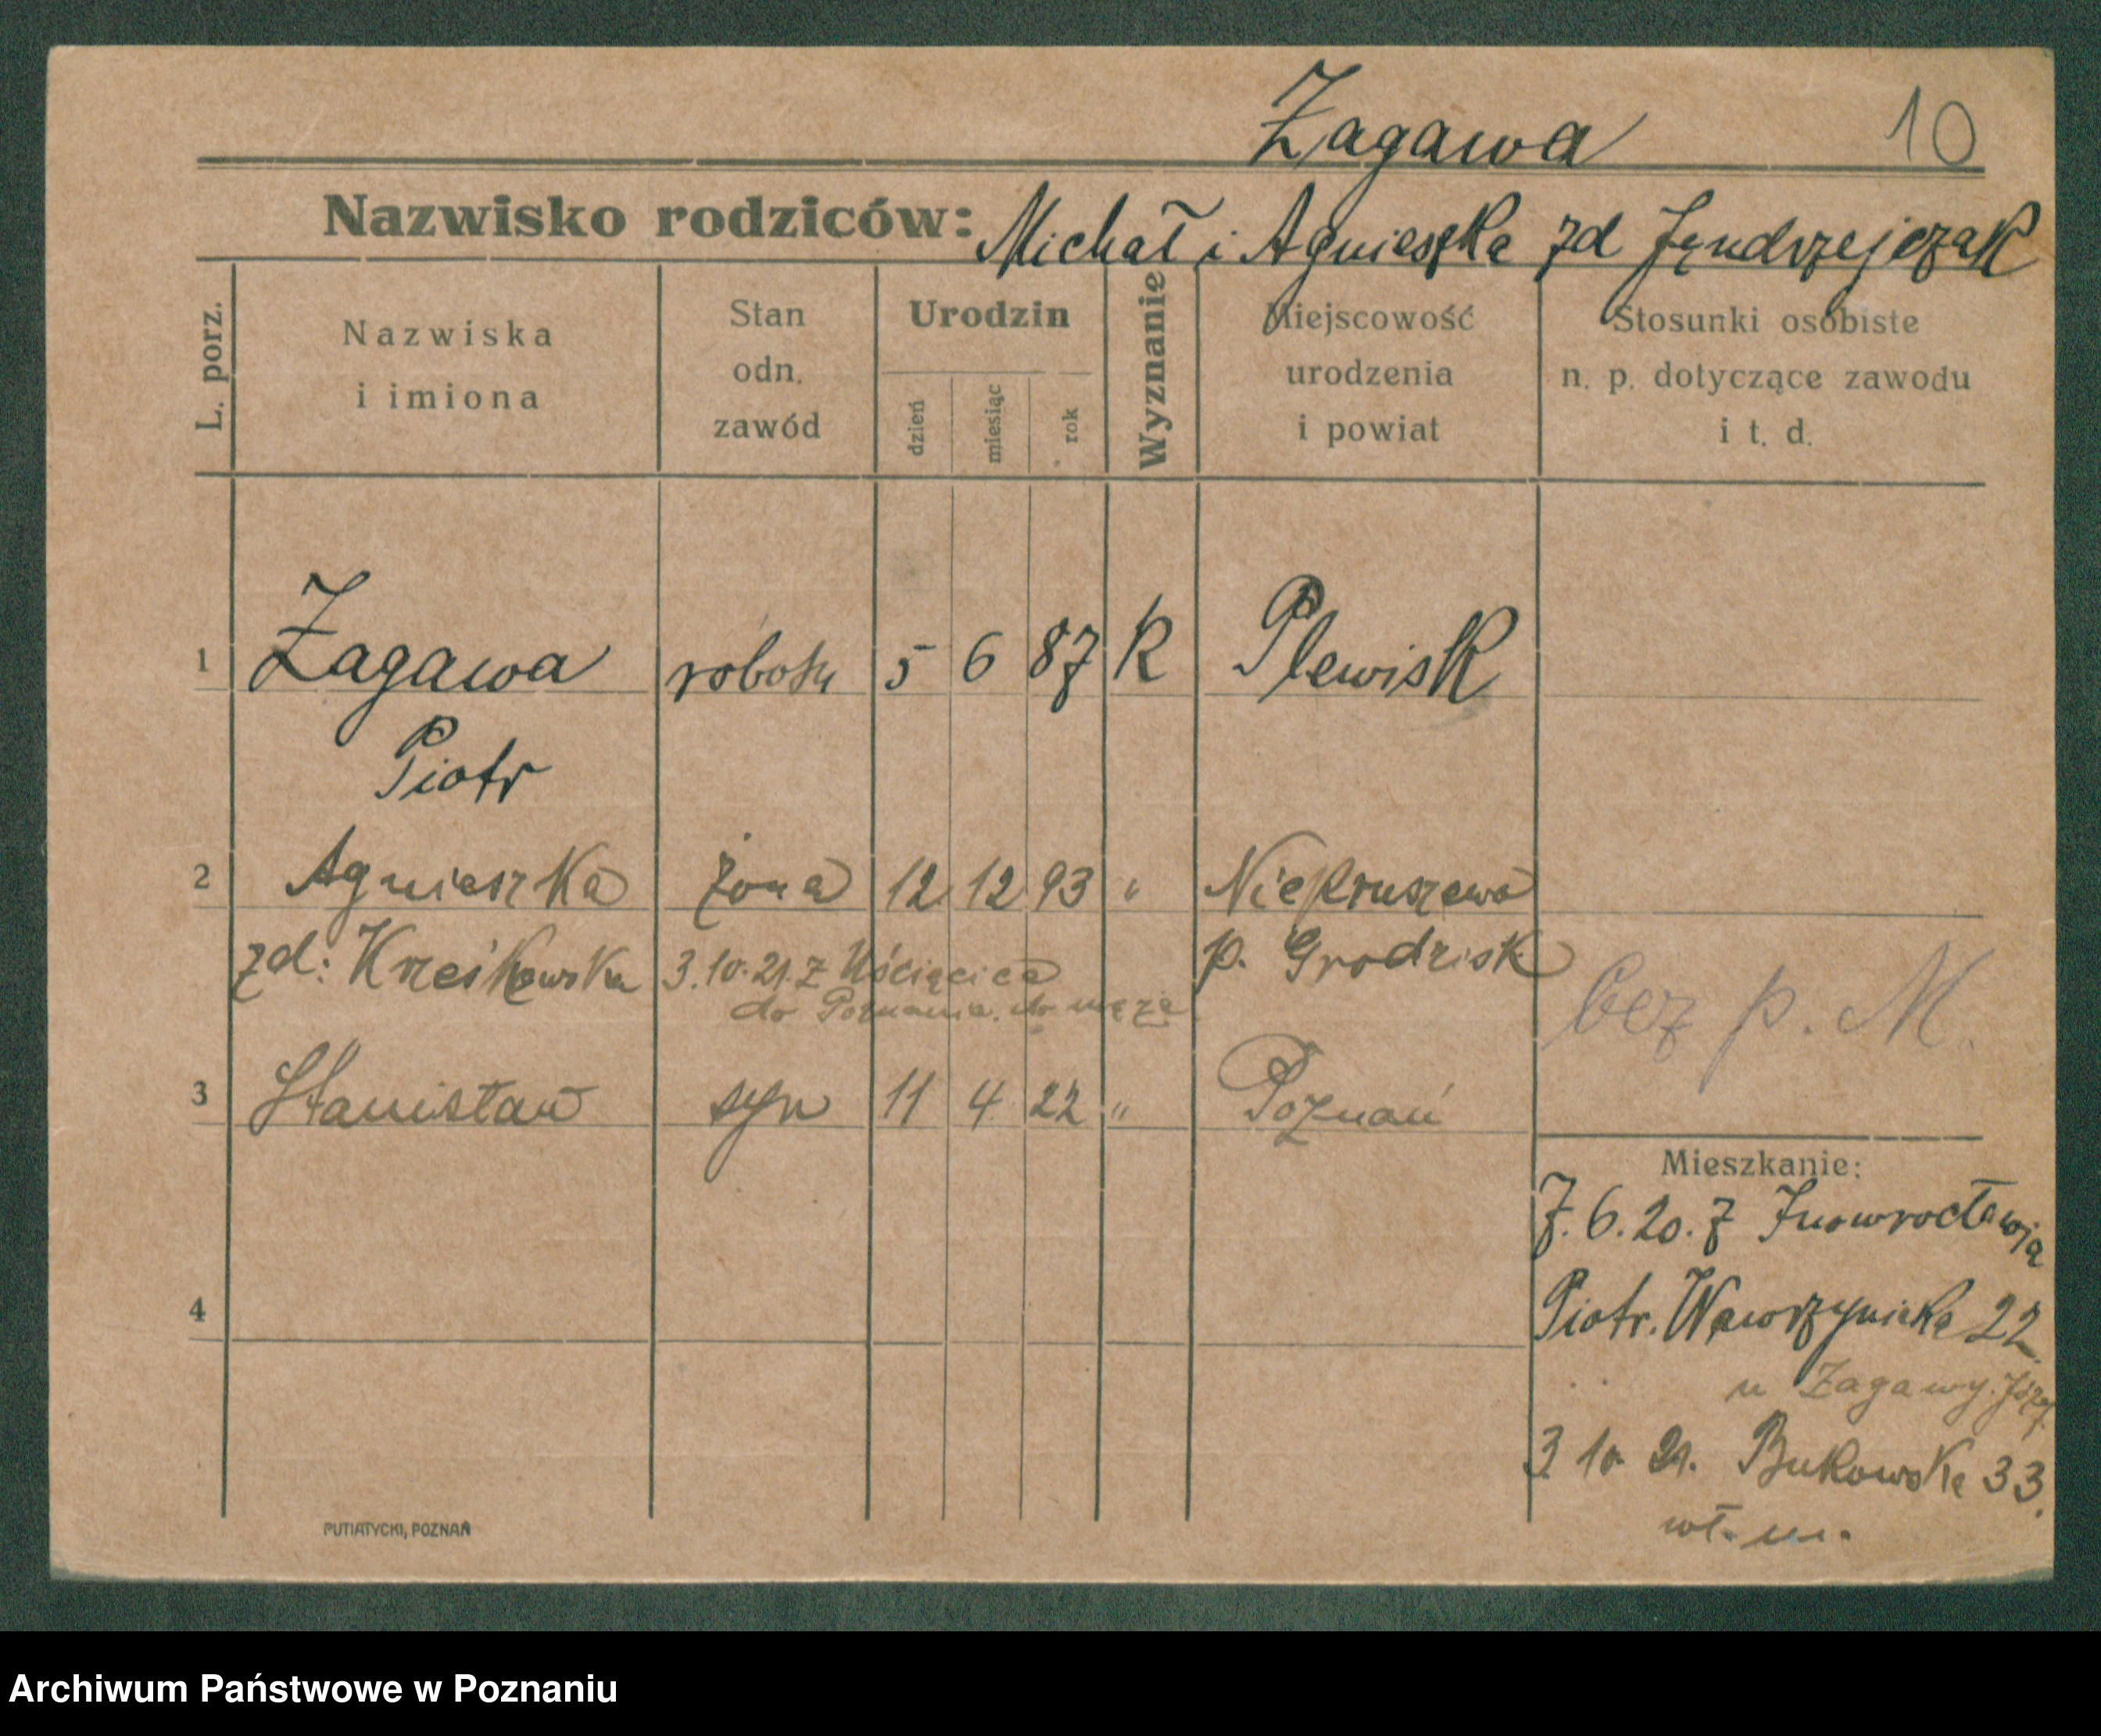 Zagawa 10
Nazwisko rodziców: Michał i Agnieszka zd Jęndrzejczak
L. porz.
Nazwiska i imiona
Stan odn. zawód
Urodzin
dzień miesiąc rok
Wyznanie
Miejscowość urodzenia i powiat
Stosunki osobiste n. p. dotyczące zawodu i t. d.
1 Zagawa robotn 5 6 87 K Plewisk
Piotr
2 Agnieszka żona 12 12 93 " Niepruszewo
zd: Krześkowska 3.10.21. z Uścięcica p. Grodzisk
do Poznania. do męża
bez p. M.
3 Stanisław syn 11 4 22 " Poznań
Mieszkanie:
7.6.20. z Inowrocławia
4 Piotr. Wawrzyniaka 22
u Zagawy. Józef
3 10 21. Bukowska 33.
wł. m.
PUTIATYCKI, POZNAŃ
Archiwum Państwowe w Poznaniu